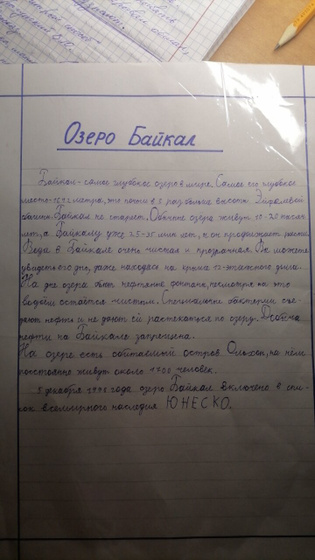 Озеро Байкал
Байкал - самое глубокое озеро в мире. Самое его глубокое
место - 1642 метра, это почти в 5 раз больше высоты Эйфелевой
башни. Байкал не стареет. Обычно озера живут 10-20 тысяч
лет, а Байкалу уже 25-35 млн лет, и он продолжает расти.
Вода в Байкале очень чистая и прозрачная. Вы можете
увидеть его дно, даже находясь на крыше 12-этажного дома.
На дне озера бьют нефтяные фонтаны, несмотря на это
водоём остаётся чистым. Специальные бактерии съе-
дают нефть и не дают ей растекаться по озеру. Добыча
нефти на Байкале запрещена.
На озере есть обитаемый остров Ольхон, на нём
постоянно живут около 1700 человек.
5 декабря 1996 года озеро Байкал включено в спи-
сок всемирного наследия ЮНЕСКО.